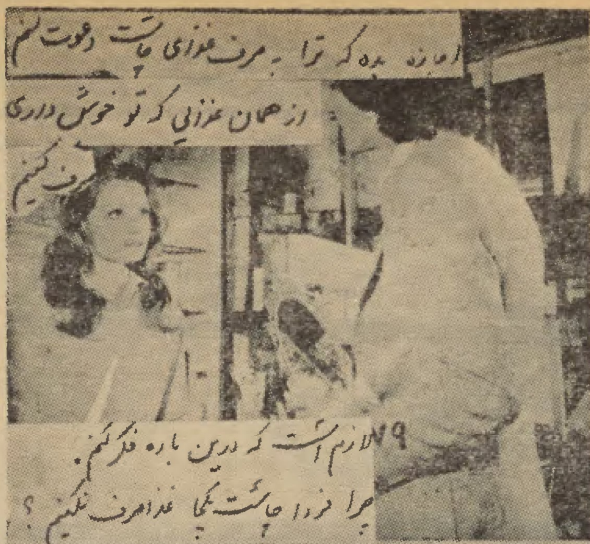 اجازه بده که ترا به صرف غذای چاشت دعوت کنم
از همان غذایی که تو خوش داری
صرف کنیم
۷۹
لازم است که درین باره فکر کنم.
چرا فردا چاشت یکجا غذا صرف نکنیم ؟